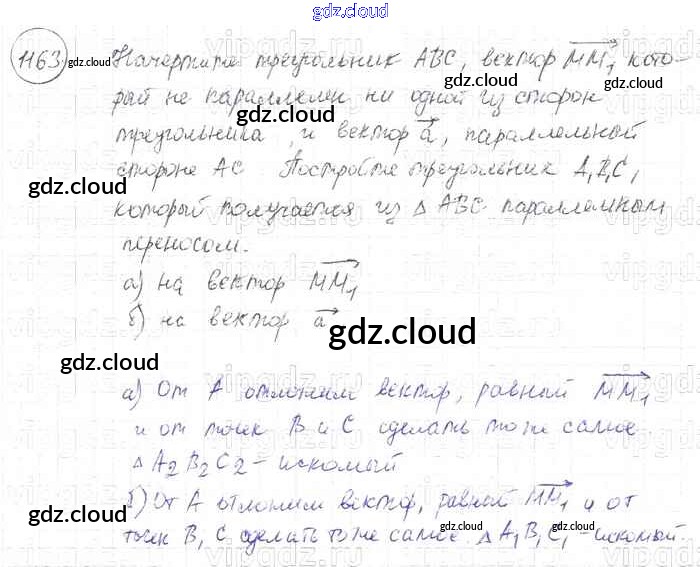 gdz.cloud
1163. Начертите треугольник ABC, вектор MM₁, кото-
рый не параллелен ни одной из сторон
треугольника, и вектор a, параллельный
стороне AC. Постройте треугольник A₁B₁C₁,
который получается из △ ABC параллельным
переносом.
а) на вектор MM₁
б) на вектор a
а) От A отложим вектор, равный MM₁
и от точек B и C сделать то же самое.
△ A₂B₂C₂ - искомый
б) От A отложим вектор, равный MM₁ и от
точек B, C сделать то же самое. △ A₁B₁C₁ - искомый.